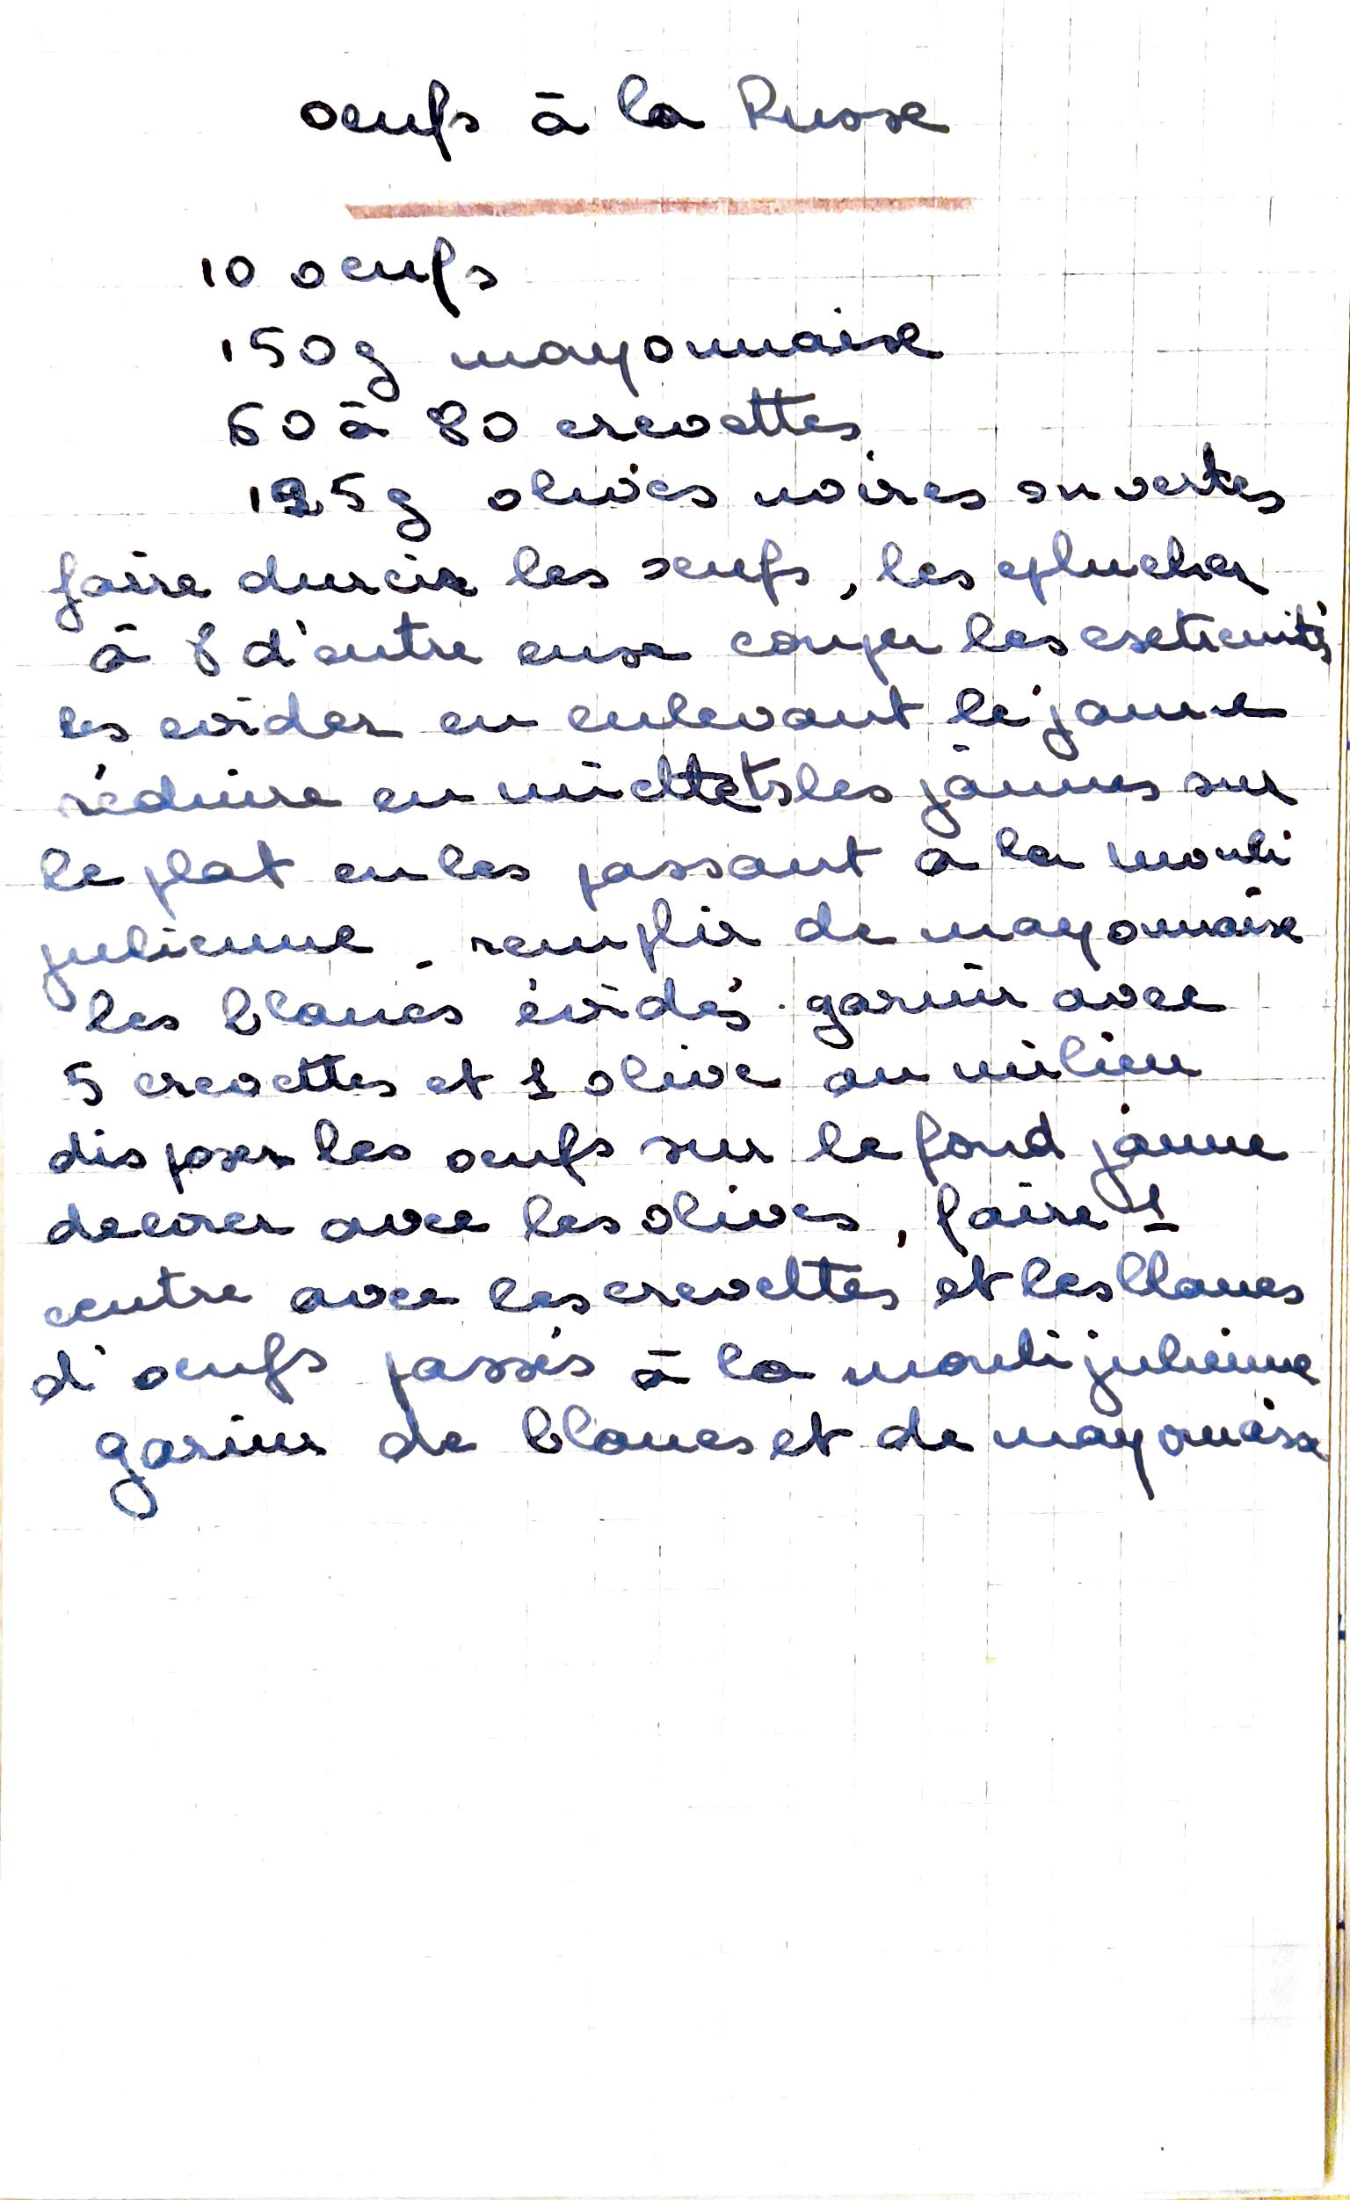 oeufs à la Russe
10 oeufs
150g mayonnaise
60 à 80 crevettes
125g olives noires ou vertes
faire durcir les oeufs, les eplucher
à 8 d'entre eux couper les extremités
les evider en enlevant le jaune
réduire en miettes les jaunes sur
le plat en les passant à la mouli
julienne - remplir de mayonnaise
les blancs évidés. garnir avec
5 crevettes et 1 olive au milieu
disposer les oeufs sur le fond jaune
decorer avec les olives, faire 1
centre avec les crevettes et les blancs
d'oeufs passés à la mouli julienne
garnir de blancs et de mayonnaise